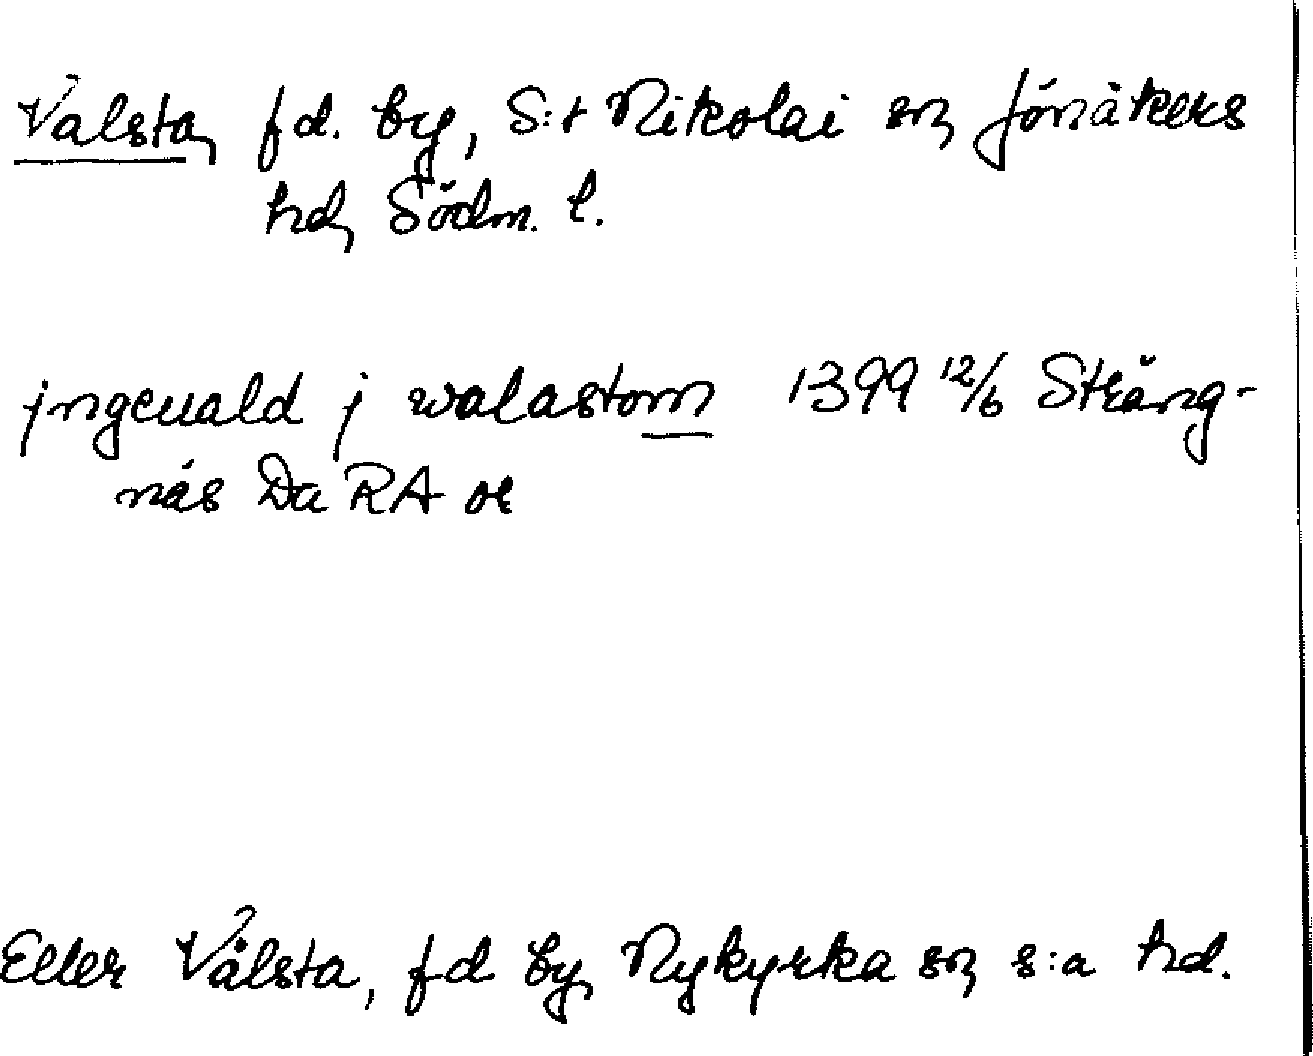 Valsta, f d. by, S:t Nikolai sn, Jönåkers
hd, Södm. l.
jngeuald j walastom 1399 12/6 Sträng-
näs Da RA or
Eller Vålsta, f d by, Nykyrka sn, s:a hd.